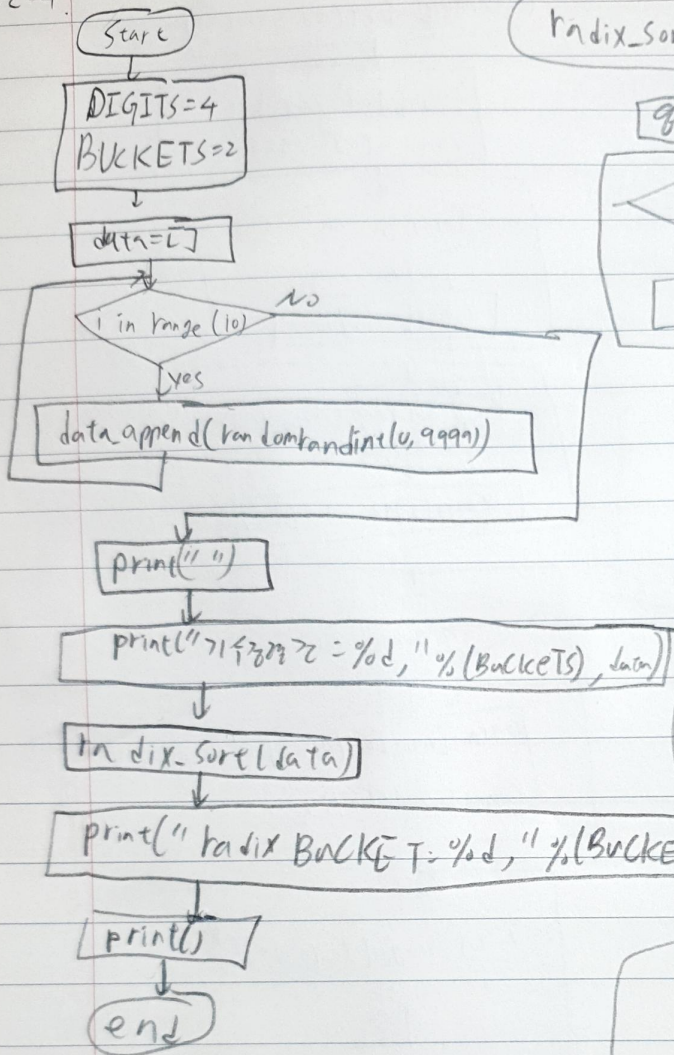 Start
radix_sor
DIGITS=4
BUCKETS=2
q
data=[]
i in range(10)
No
yes
data append(randomrandint(0,9999))
print(" ")
print(" =%d," %(BuckeTS), data)
radix_sort(data)
print(" radix BUCKET=%d," %(BUCKE
print()
end